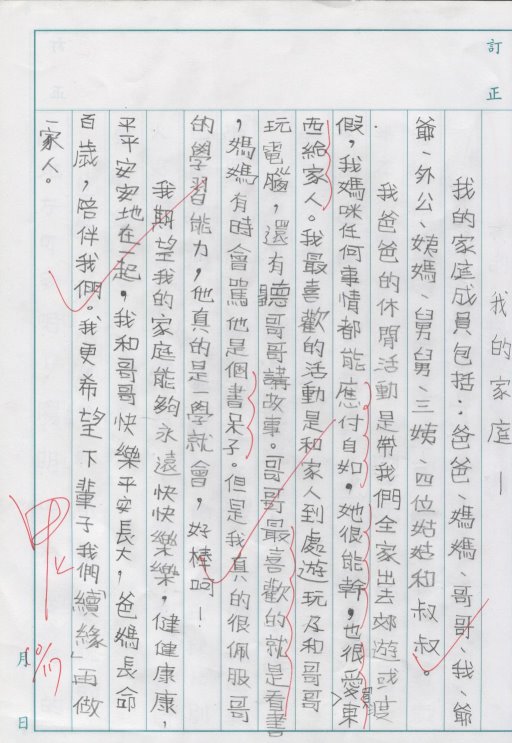 訂正
我的家庭
我的家庭成員包括:爸爸、媽媽、哥哥、我、爺
爺、外公、姨媽、舅舅、三姨、四位姑姑和叔叔。
我爸爸的休閒活動是帶我們全家出去郊遊或渡
假,我媽咪任何事情都能應付自如,她很能幹,也很愛買東
西給家人。我最喜歡的活動是和家人到處遊玩及和哥哥
玩電腦,還有聽哥哥講故事。哥哥最喜歡的就是看書
,媽媽有時會罵他是個書呆子。但是我真的很佩服哥
的學習能力,他真的是一學就會,好棒呵!
我期望我的家庭能夠永遠快快樂樂,健健康康,
平平安安地在一起,我和哥哥快樂平安長大,爸媽長命
百歲,陪伴我們。我更希望下輩子我們「續緣」再做
一家人。
甲
10/17
月 日